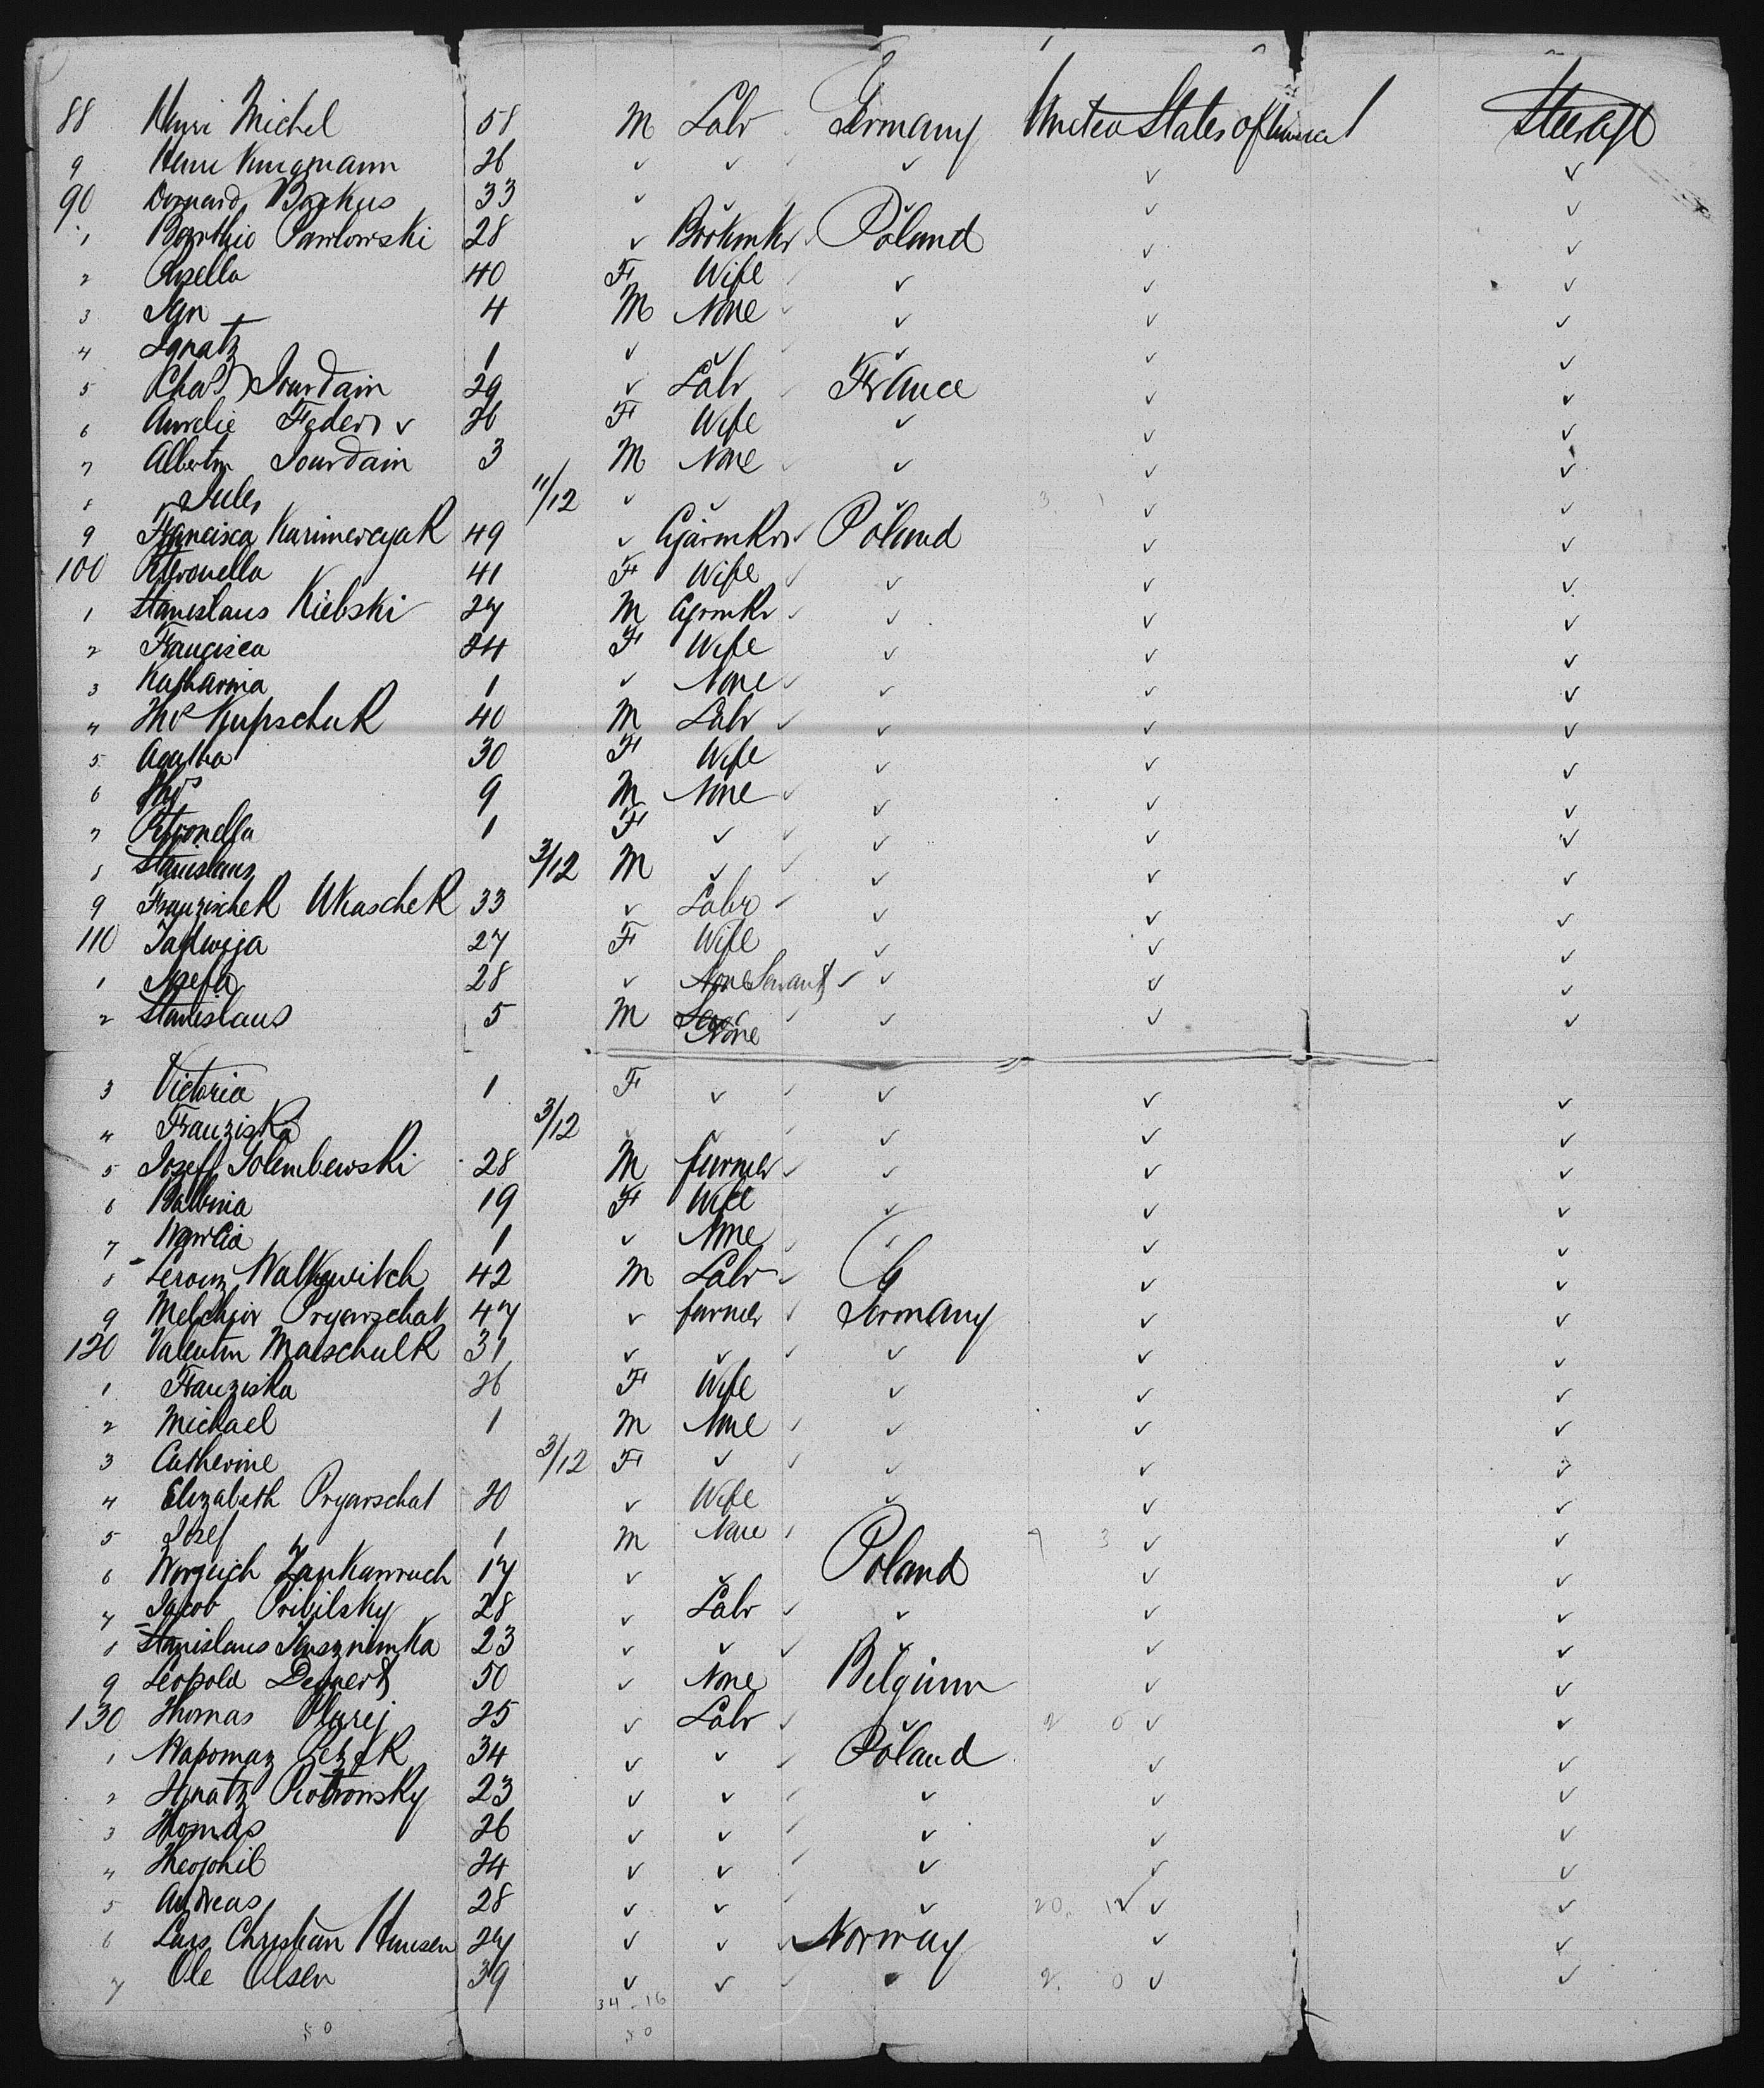 88 Henri Michel 58 M Labr Germany United States of America Steerage
9 Henri Kingmann 26 ✓ ✓ ✓ ✓ ✓
90 Bernard Backus 33 ✓ ✓ ✓ ✓
1 Pawlowski 28 ✓ Poland ✓ ✓
2 Rosella 40 F Wife ✓ ✓ ✓
3 Jan 4 M None ✓ ✓ ✓
4 Ignatz 1 ✓ ✓ ✓ ✓ ✓
5 Chas Jourdain 29 ✓ Labr France ✓ ✓
6 Aurelie Feder ✓ 26 F Wife ✓ ✓ ✓
7 Jourdain 3 M None ✓ ✓ ✓
8 Jules 11/12 ✓ ✓ ✓ 3 1 ✓ ✓
9 Francisca 49 ✓ Poland ✓ ✓
100 Petronella 41 F Wife ✓ ✓ ✓
1 Stanislaus Kielski 27 M ✓ ✓ ✓
2 Francisca 24 F Wife ✓ ✓ ✓
3 Katharina 1 ✓ None ✓ ✓ ✓
4 KupschuK 40 M Labr ✓ ✓ ✓
5 Agatha 30 F Wife ✓ ✓ ✓
6 9 M None ✓ ✓ ✓
7 Petronella 1 F ✓ ✓ ✓ ✓
8 Stanislaus 3/12 M ✓ ✓ ✓ ✓
9 FranzischeK UKascheK 33 ✓ Labr ✓ ✓ ✓
110 Jadwija 27 F Wife ✓ ✓ ✓
1 Josefa 28 ✓ None Servant ✓ ✓ ✓ ✓
2 Stanislaus 5 M None ✓ ✓ ✓
3 Victoria 1 F ✓ ✓ ✓ ✓
4 Franziska 3/12 ✓ ✓ ✓ ✓ ✓
5 Josef Golembewski 28 M farmer ✓ ✓ ✓
6 Balbina 19 F Wife ✓ ✓ ✓
7 1 ✓ None ✓ ✓ ✓
8 Walkewitch 42 M Labr ✓ ✓
9 Melchior Pryarschat 47 ✓ farmer Germany ✓ ✓
120 Valentin MatschulK 31 ✓ ✓ ✓ ✓ ✓
1 Franziska 26 F Wife ✓ ✓ ✓
2 Michael 1 M None ✓ ✓ ✓
3 Catherine 3/12 F ✓ ✓ ✓ ✓
4 Elizabeth Pryarschat 20 ✓ Wife ✓ ✓ ✓
5 Josef 1 M None 7 3 ✓ ✓
6 17 ✓ ✓ Poland ✓ ✓
7 Jacob Pribilsky 28 ✓ Labr ✓ ✓ ✓
8 Stanislaus 23 ✓ ✓ ✓ ✓ ✓
9 Leopold 50 ✓ None Belgium ✓ ✓
130 Thomas 25 ✓ Labr ✓ 2 0 ✓ ✓
1 34 ✓ ✓ Poland ✓ ✓
2 Ignatz Piotrowsky 23 ✓ ✓ ✓ ✓ ✓
3 Thomas 26 ✓ ✓ ✓ ✓ ✓
4 Theophil 24 ✓ ✓ ✓ ✓ ✓
5 Andreas 28 ✓ ✓ ✓ 20 ✓ ✓
6 Lars Christian Hansen 27 ✓ ✓ Norway ✓ ✓
7 Ole Olsen 39 ✓ ✓ 2 0 ✓ ✓
34 - 16
50 50